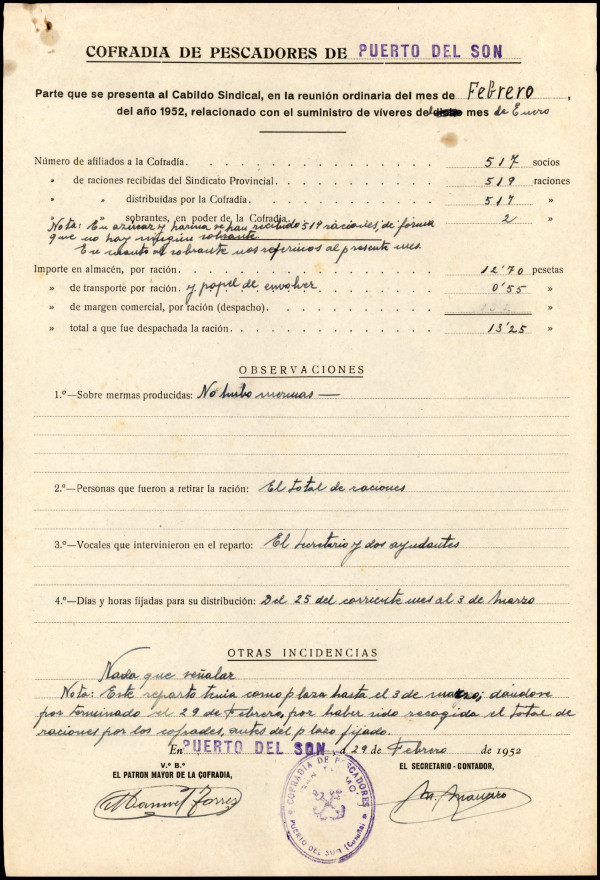 COFRADIA DE PESCADORES DE PUERTO DEL SON
Parte que se presenta al Cabildo Sindical, en la reunión ordinaria del mes de Febrero,
del año 1952, relacionado con el suministro de víveres del mes de Enero
Número de afiliados a la Cofradía. 517 socios
» de raciones recibidas del Sindicato Provincial. 519 raciones
» » distribuídas por la Cofradía. 517 »
» » sobrantes, en poder de la Cofradía. 2 »
Nota: En azúcar y harina se han recibido 519 raciones, de forma
que no hay ningún sobrante.
En cuanto al sobrante nos referimos al presente mes.
Importe en almacén, por ración. 12'70 pesetas
» de transporte por ración. y papel de envolver 0'55 »
» de margen comercial, por ración (despacho). »
» total a que fue despachada la ración. 13'25 »
OBSERVACIONES
1.º—Sobre mermas producidas: No hubo mermas —
2.º—Personas que fueron a retirar la ración: El total de raciones
3.º—Vocales que intervinieron en el reparto: El Secretario y dos ayudantes
4.º—Días y horas fijadas para su distribución: Del 25 del corriente mes al 3 de Marzo
OTRAS INCIDENCIAS
Nada que señalar
Nota: Este reparto tenia como plaza hasta el 3 de marzo; dándose
por terminado el 29 de Febrero, por haber sido recogida el total de
raciones por los cofrades, antes del plazo fijado.
En PUERTO DEL SON, a 29 de Febrero de 1952
V.º B.º
EL PATRON MAYOR DE LA COFRADIA,
EL SECRETARIO-CONTADOR,
Manuel Torres
COFRADIA DE PESCADORES
PUERTO DEL SON (Coruña)